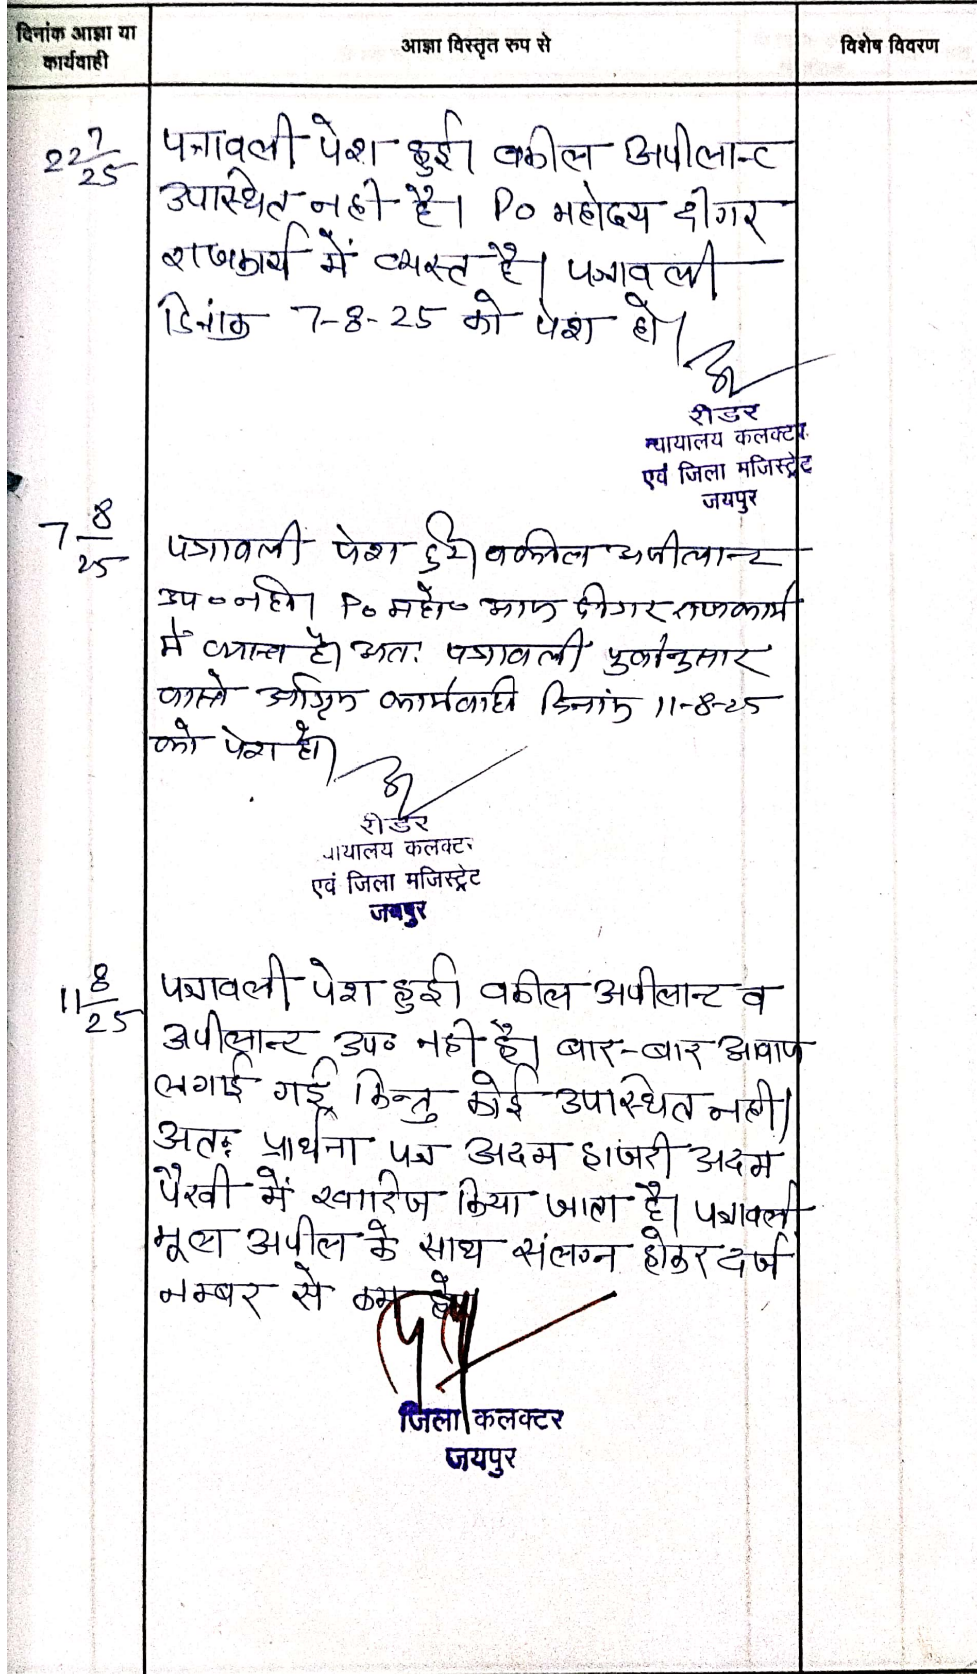 दिनांक आज्ञा या
कार्यवाही
आज्ञा विस्तृत रुप से
विशेष विवरण
22 7/25
पत्रावली पेश हुई। वकील अपीलान्ट
उपस्थित नही है। P० महोदय दीगर
राजकार्य में व्यस्त है। पत्रावली
दिनांक 7-8-25 को पेश हो।
रीडर
न्यायालय कलक्टर
एवं जिला मजिस्ट्रेट
जयपुर
7 8/25
पत्रावली पेश हुई। वकील अपीलान्ट
उप० नही। P० महो० दीगर राजकार्य
में व्यस्त है। अतः पत्रावली पूर्वानुसार
वास्ते अग्रिम कार्यवाही दिनांक 11-8-25
को पेश हो।
रीडर
न्यायालय कलक्टर
एवं जिला मजिस्ट्रेट
जयपुर
11 8/25
पत्रावली पेश हुई। वकील अपीलान्ट व
अपीलान्ट उप० नही है। बार-बार आवाज
लगाई गई, किन्तु कोई उपस्थित नही।
अतः प्रार्थना पत्र अदम हाजरी अदम
पैरवी में खारिज किया जाता है। पत्रावली
मूल अपील के साथ संलग्न होकर दर्ज
नम्बर से कम हो।
जिला कलक्टर
जयपुर